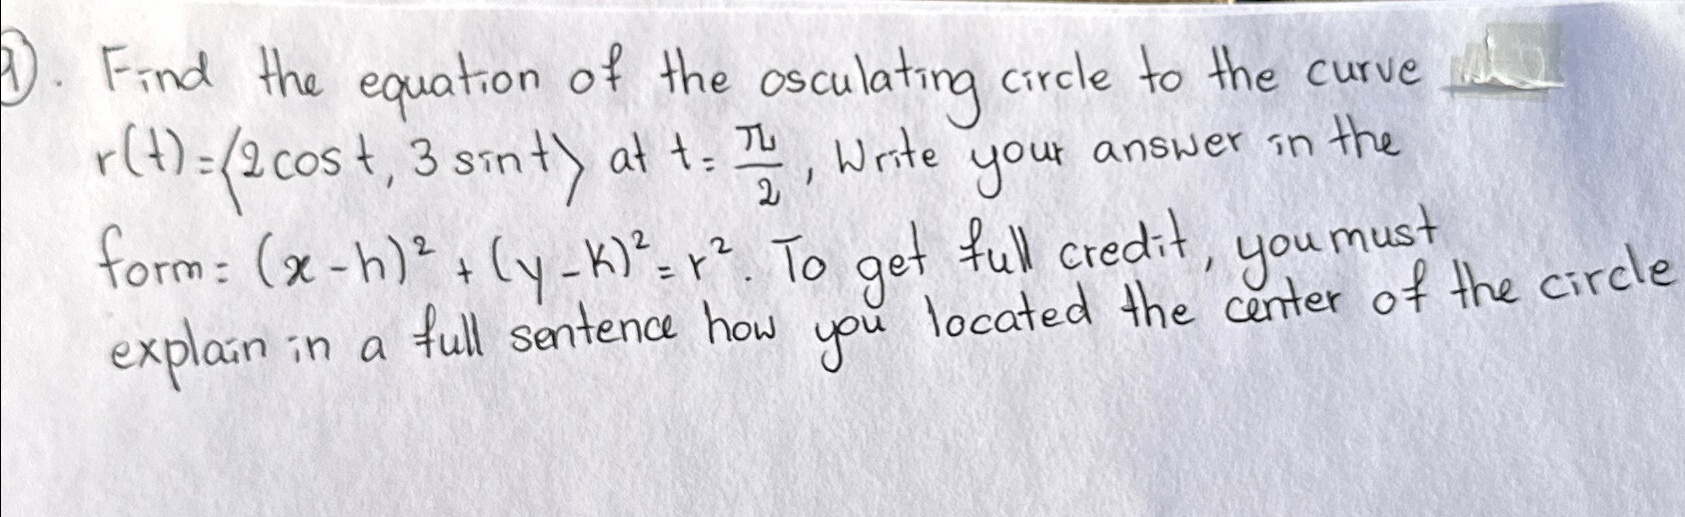 9. Find the equation of the osculating circle to the curve
r(t)=⟨2cost, 3 sint⟩ at t=π/2, Write your answer in the
form: (x-h)² + (y-k)²=r². To get full credit, you must
explain in a full sentence how you located the center of the circle